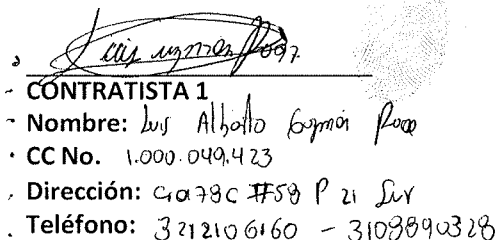 CONTRATISTA 1
Nombre: Luis Alberto Guzmán
CC No. 1.000.049.423
Dirección: Cra78C #58 P 21 Sur
Teléfono: 3212106160 - 3108890328